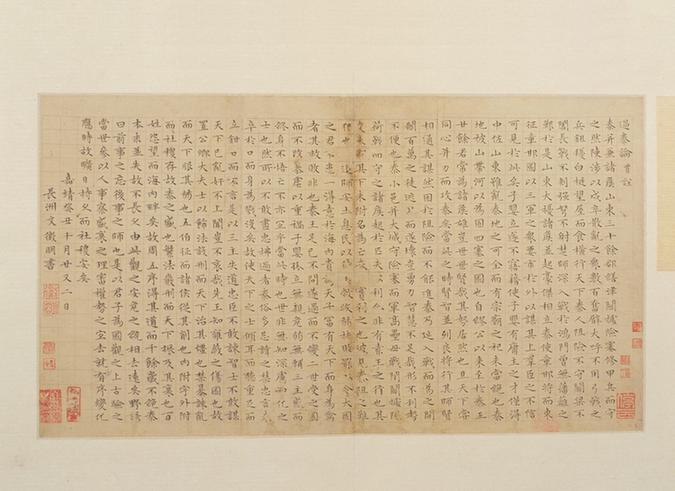 過秦論 賈誼
秦并兼諸侯山東三十餘郡繕津關據險塞修甲兵而守
之然陳涉以戍卒散亂之衆數百奮臂大呼不用弓戟之
兵鉏櫌白梃望屋而食橫行天下秦人阻險不守關梁不
闔長戟不刺彊弩不射楚師深入戰於鴻門曾無藩籬之
艱於是山東大擾諸侯並起豪傑相立秦使章邯將而東
征章邯因以三軍之衆要市於外以謀其上羣臣之不信
可見於此矣子嬰立遂不寤藉使子嬰有庸主之才僅得
中佐山東雖亂秦之地可全而有宗廟之祀未當絕也秦
地被山帶河以為固四塞之國也自繆公以來至於秦王
廿餘君常為諸侯雄豈世世賢哉其勢居然也且天下嘗
同心并力而攻秦矣當此之時賢智並列良將行其師賢
相通其謀然困於阻險而不能進秦乃延入戰而為之開
關百萬之徒逃北而遂壞豈勇力智慧不足哉形不利勢
不便也秦小邑并大城守險塞而軍高壘毋戰閉關據阨
荷戟而守之諸侯起於匹夫以利合非有素王之行也其
交未親其下未附名為亡秦其實利之也彼見秦阻之難
犯也必退師安土息民以待其敝收弱扶罷以令大國
之君不患不得意於海內貴為天子富有天下而身為禽
者其救敗非也秦王足己不問遂過而不變二世受之因
而不改暴虐以重禍子嬰孤立無親危弱無輔三主惑而
終身不悟亡不亦宜乎當此時也世非無深慮知化之
士也然所以不敢盡忠拂過者秦俗多忌諱之禁忠言未
卒於口而身為戮沒矣故使天下之士傾耳而聽重足而
立鉗口而不言是以三主失道忠臣不敢諫智士不敢謀
天下已亂奸不上聞豈不哀哉先王知雍蔽之傷國也故
置公卿大夫士以飾法設刑而天下治其彊也禁暴誅亂
而天下服其弱也五伯征而諸侯從其削也內守外附
而社稷存故秦之盛也繁法嚴刑而天下振及其衰也百
姓怨望而海內畔矣故周五序得其道而千餘歲不絕秦
本末並失故不長久由此觀之安危之統相去遠矣野諺
曰前事之忘後事之師也是以君子為國觀之上古驗之
當世參以人事察盛衰之理審權勢之宜去就有序變化
應時故曠日持久而社稷安矣
嘉靖癸丑十月廿又二日
長洲文徵明書